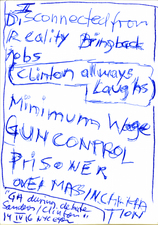 II
Disconnected from
Reality Bring back
jobs
(Clinton allways
Laughs)
Minimum Wage
GUN CONTROL
PRISONER
OVER MASSINCHHHA
ITION
"GA during debate
Sanders/Clinton"
14 IV 16 NYC